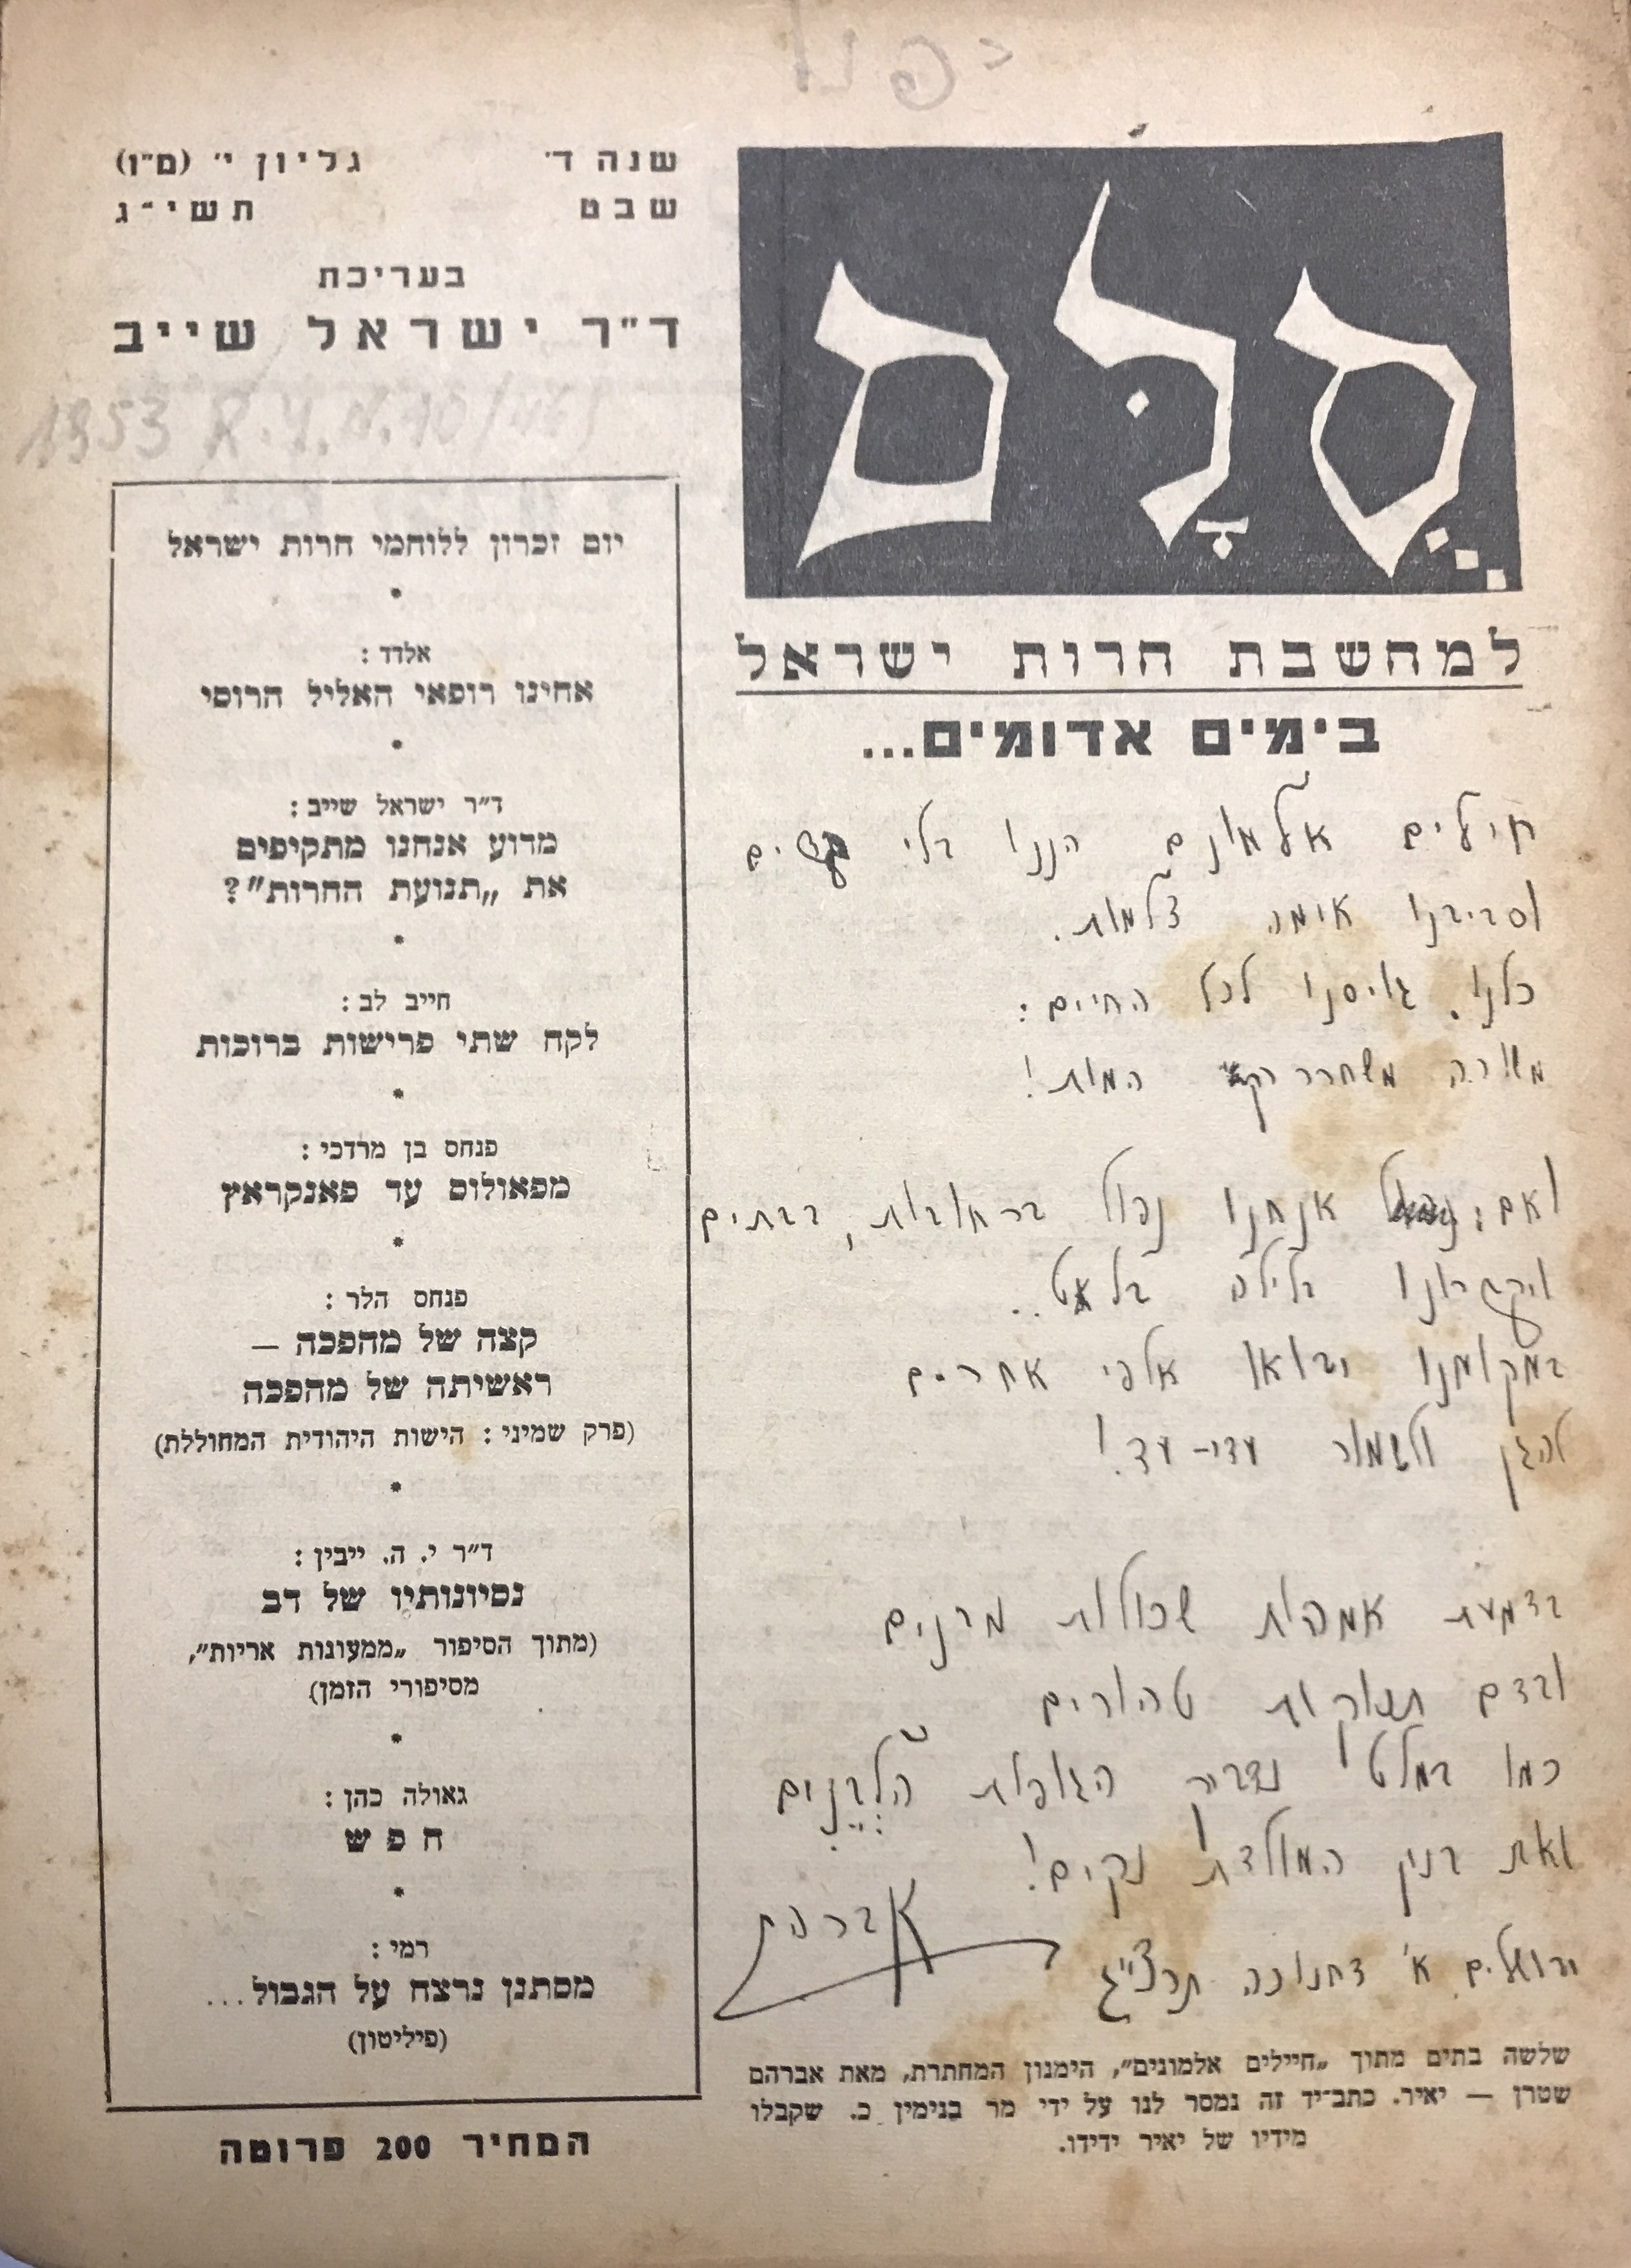 סֻלָּם
למחשבת חרות ישראל
שנה ד׳ גליון י׳ (מ״ו)
שבט תשי״ג
בעריכת
ד״ר ישראל שייב
1953
יום זכרון ללוחמי חרות ישראל
*
אלדד :
אחינו רופאי האליל הרוסי
*
ד״ר ישראל שייב :
מדוע אנחנו מתקיפים
את „תנועת החרות״?
*
חייב לב :
לקח שתי פרישות ברוכות
*
פנחס בן מרדכי :
מפאולוס עד פאנקראץ
*
פנחס הלר :
קצה של מהפכה —
ראשיתה של מהפכה
(פרק שמיני : הישות היהודית המחוללת)
*
ד״ר י. ה. ייבין :
נסיונותיו של דב
(מתוך הסיפור „ממעונות אריות״,
מסיפורי הזמן)
*
גאולה כהן :
חפש
*
רמי :
מסתנן נרצח על הגבול...
(פיליטון)
המחיר 200 פרוטה
בימים אדומים...
חילים אלמונים הננו בלי מדים
וסביבנו אימה וצלמות.
כלנו גויסנו לכל החיים:
משורה משחרר רק המות!
ואם אנחנו נפול ברחובות, בבתים
ויקברונו לילה בלאט..
במקומנו יבואו אלפי אחרים
להגן ולשמור עדי-עד!
בדמעות אמהות שכולות מבנים
ובדם תנוקות טהורים
כמו במלט נדביק הגופות הלְבֵנים
ואת בנין המולדת נקים!
אברהם
ירושלים א׳ דחנוכה תרצ״ג
שלשה בתים מתוך „חיילים אלמונים״, הימנון המחתרת, מאת אברהם
שטרן — יאיר. כתב־יד זה נמסר לנו על ידי מר בנימין כ. שקבלו
מידיו של יאיר ידידו.